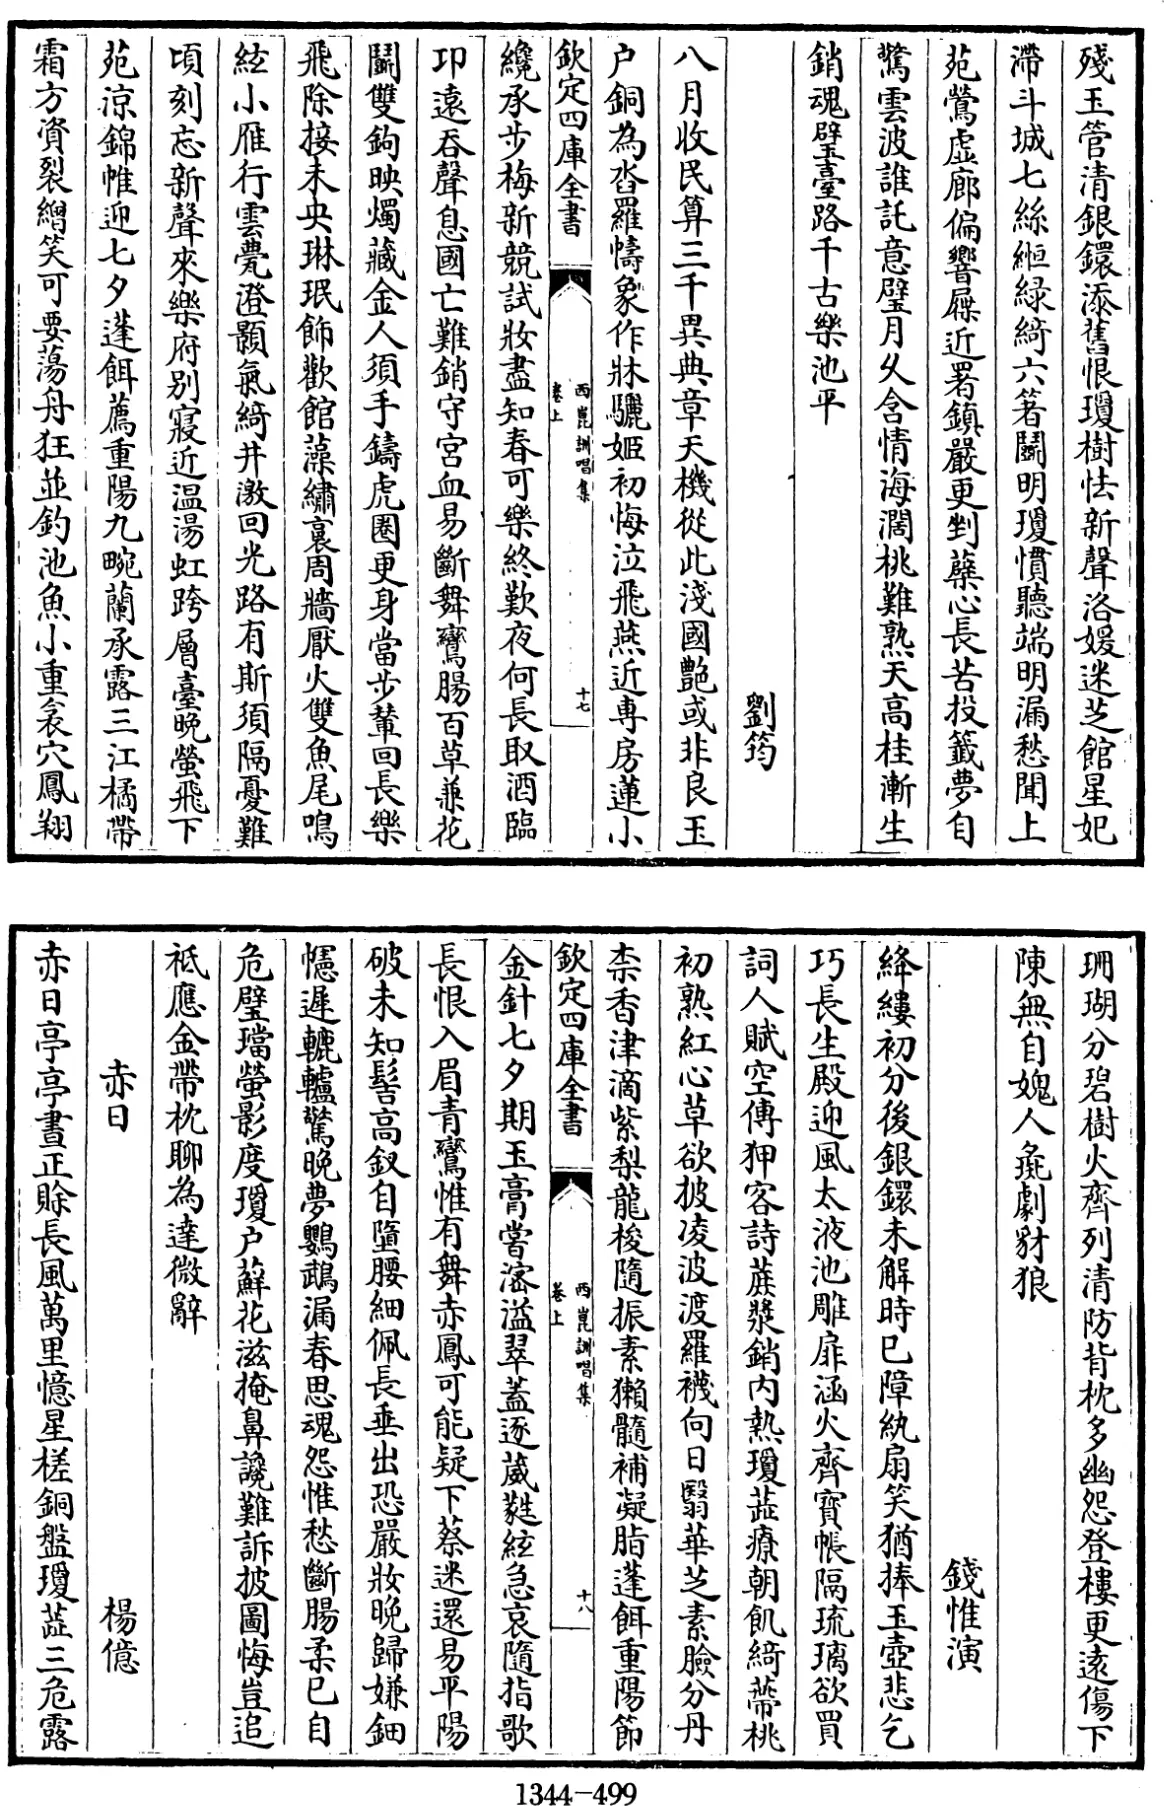 殘玉管清銀鐶添舊恨瓊樹怯新聲洛媛迷芝館星妃
滯斗城七絲絙緑綺六箸鬬明瓊慣聽端明漏愁聞上
苑鶯虛廊偏響屧近署鎮嚴更剉蘖心長苦投籤夢自
驚雲波誰託意璧月久含情海濶桃難熟天高桂漸生
銷魂璧臺路千古樂池平
劉筠
八月收民算三千異典章天機從此淺國艶或非良玉
户銅為沓羅幬象作牀驪姬初悔泣飛燕近專房蓮小
欽定四庫全書
西崑訓唱集
卷上
十七
纔承步梅新競試妝盡知春可樂終歎夜何長取酒臨
卭遠吞聲息國亡難銷守宮血易斷舞鸞腸百草兼花
鬬雙鉤映燭藏金人須手鑄虎圈更身當步輦回長樂
飛除接未央琳珉飾歡館藻繡裛周牆厭火雙魚尾鳴
絃小雁行雲甍澄顥氣綺井激回光路有斯須隔憂難
頃刻忘新聲來樂府别寢近温湯虹跨層臺晚螢飛下
苑涼錦帷迎七夕蓬餌薦重陽九畹蘭承露三江橘帶
霜方資裂繒笑可要蕩舟狂並釣池魚小重衾穴鳳翔
珊瑚分碧樹火齊列清防背枕多幽怨登樓更遠傷下
陳無自媿人彘劇豺狼
錢惟演
絳縷初分後銀鐶未解時已障紈扇笑猶捧玉壺悲乞
巧長生殿迎風太液池雕扉涵火齊寳帳隔琉璃欲買
詞人賦空傳狎客詩蔗漿銷内熱瓊蕋療朝飢綺蔕桃
初熟紅心草欲披凌波渡羅襪向日翳華芝素臉分丹
柰香津滴紫梨龍梭隨振素獺髓補凝脂蓬餌重陽節
欽定四庫全書
西崑訓唱集
卷上
十八
金針七夕期玉膏嘗滵溢翠蓋逐葳蕤絃急哀隨指歌
長恨入眉青鸞惟有舞赤鳳可能疑下蔡迷還易平陽
破未知髻高釵自墮腰細佩長垂出恐嚴妝晚歸嫌鈿
幰遲轆轤驚晚夢鸚鵡漏春思魂怨惟愁斷腸柔已自
危璧璫螢影度瓊户蘚花滋掩鼻讒難訴披圖悔豈追
祗應金帶枕聊為達微辭
赤日
楊億
赤日亭亭晝正賖長風萬里憶星槎銅盤瓊蕋三危露
1344-499